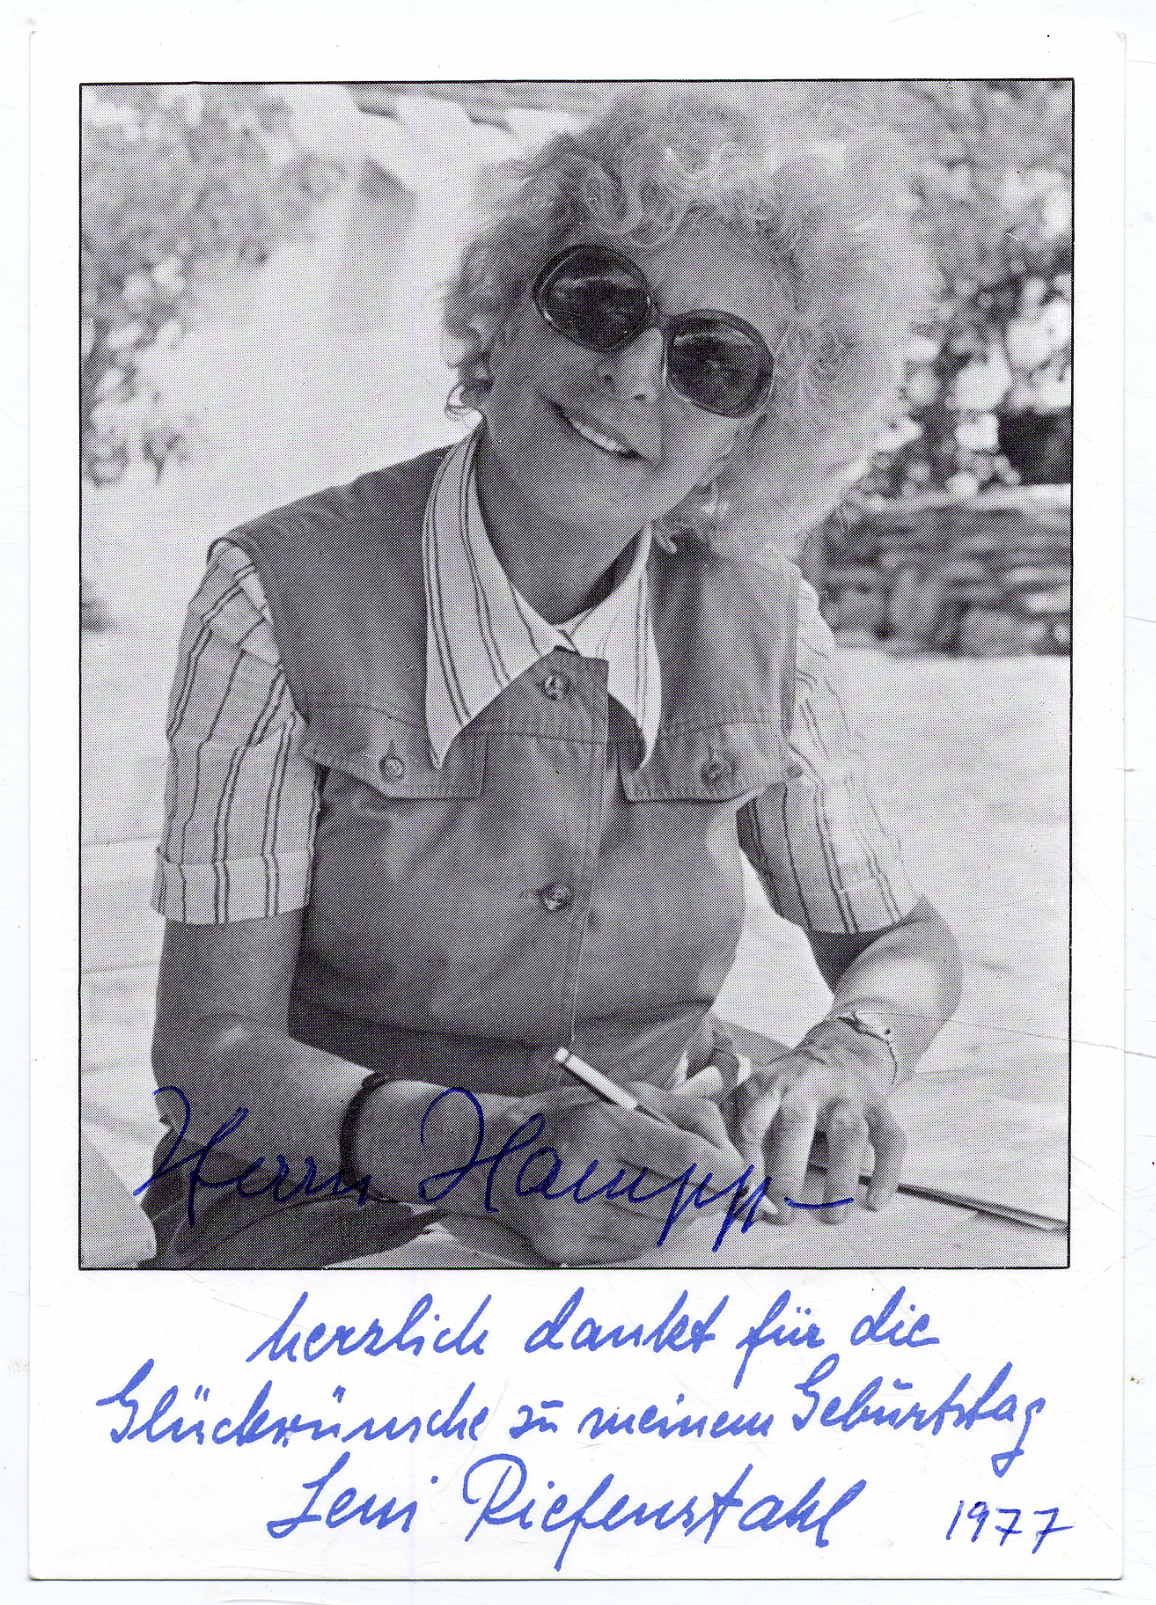 Herrn Hampp
herzlich dankt für die
Glückwünsche zu meinem Geburtstag
Leni Riefenstahl 1977